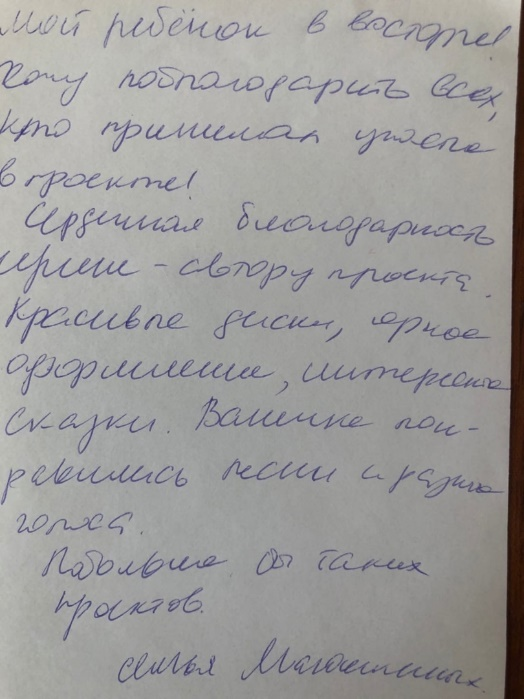 Мой ребёнок в восторге!
Хочу поблагодарить всех,
кто принимал участие
в проекте!
Сердечная благодарность
Ирине - автору проекта.
Красивые диски, яркое
оформление, интересные
сказки. Ванечке пон-
равились песни и разные
голоса.
Побольше бы таких
проектов.
семья